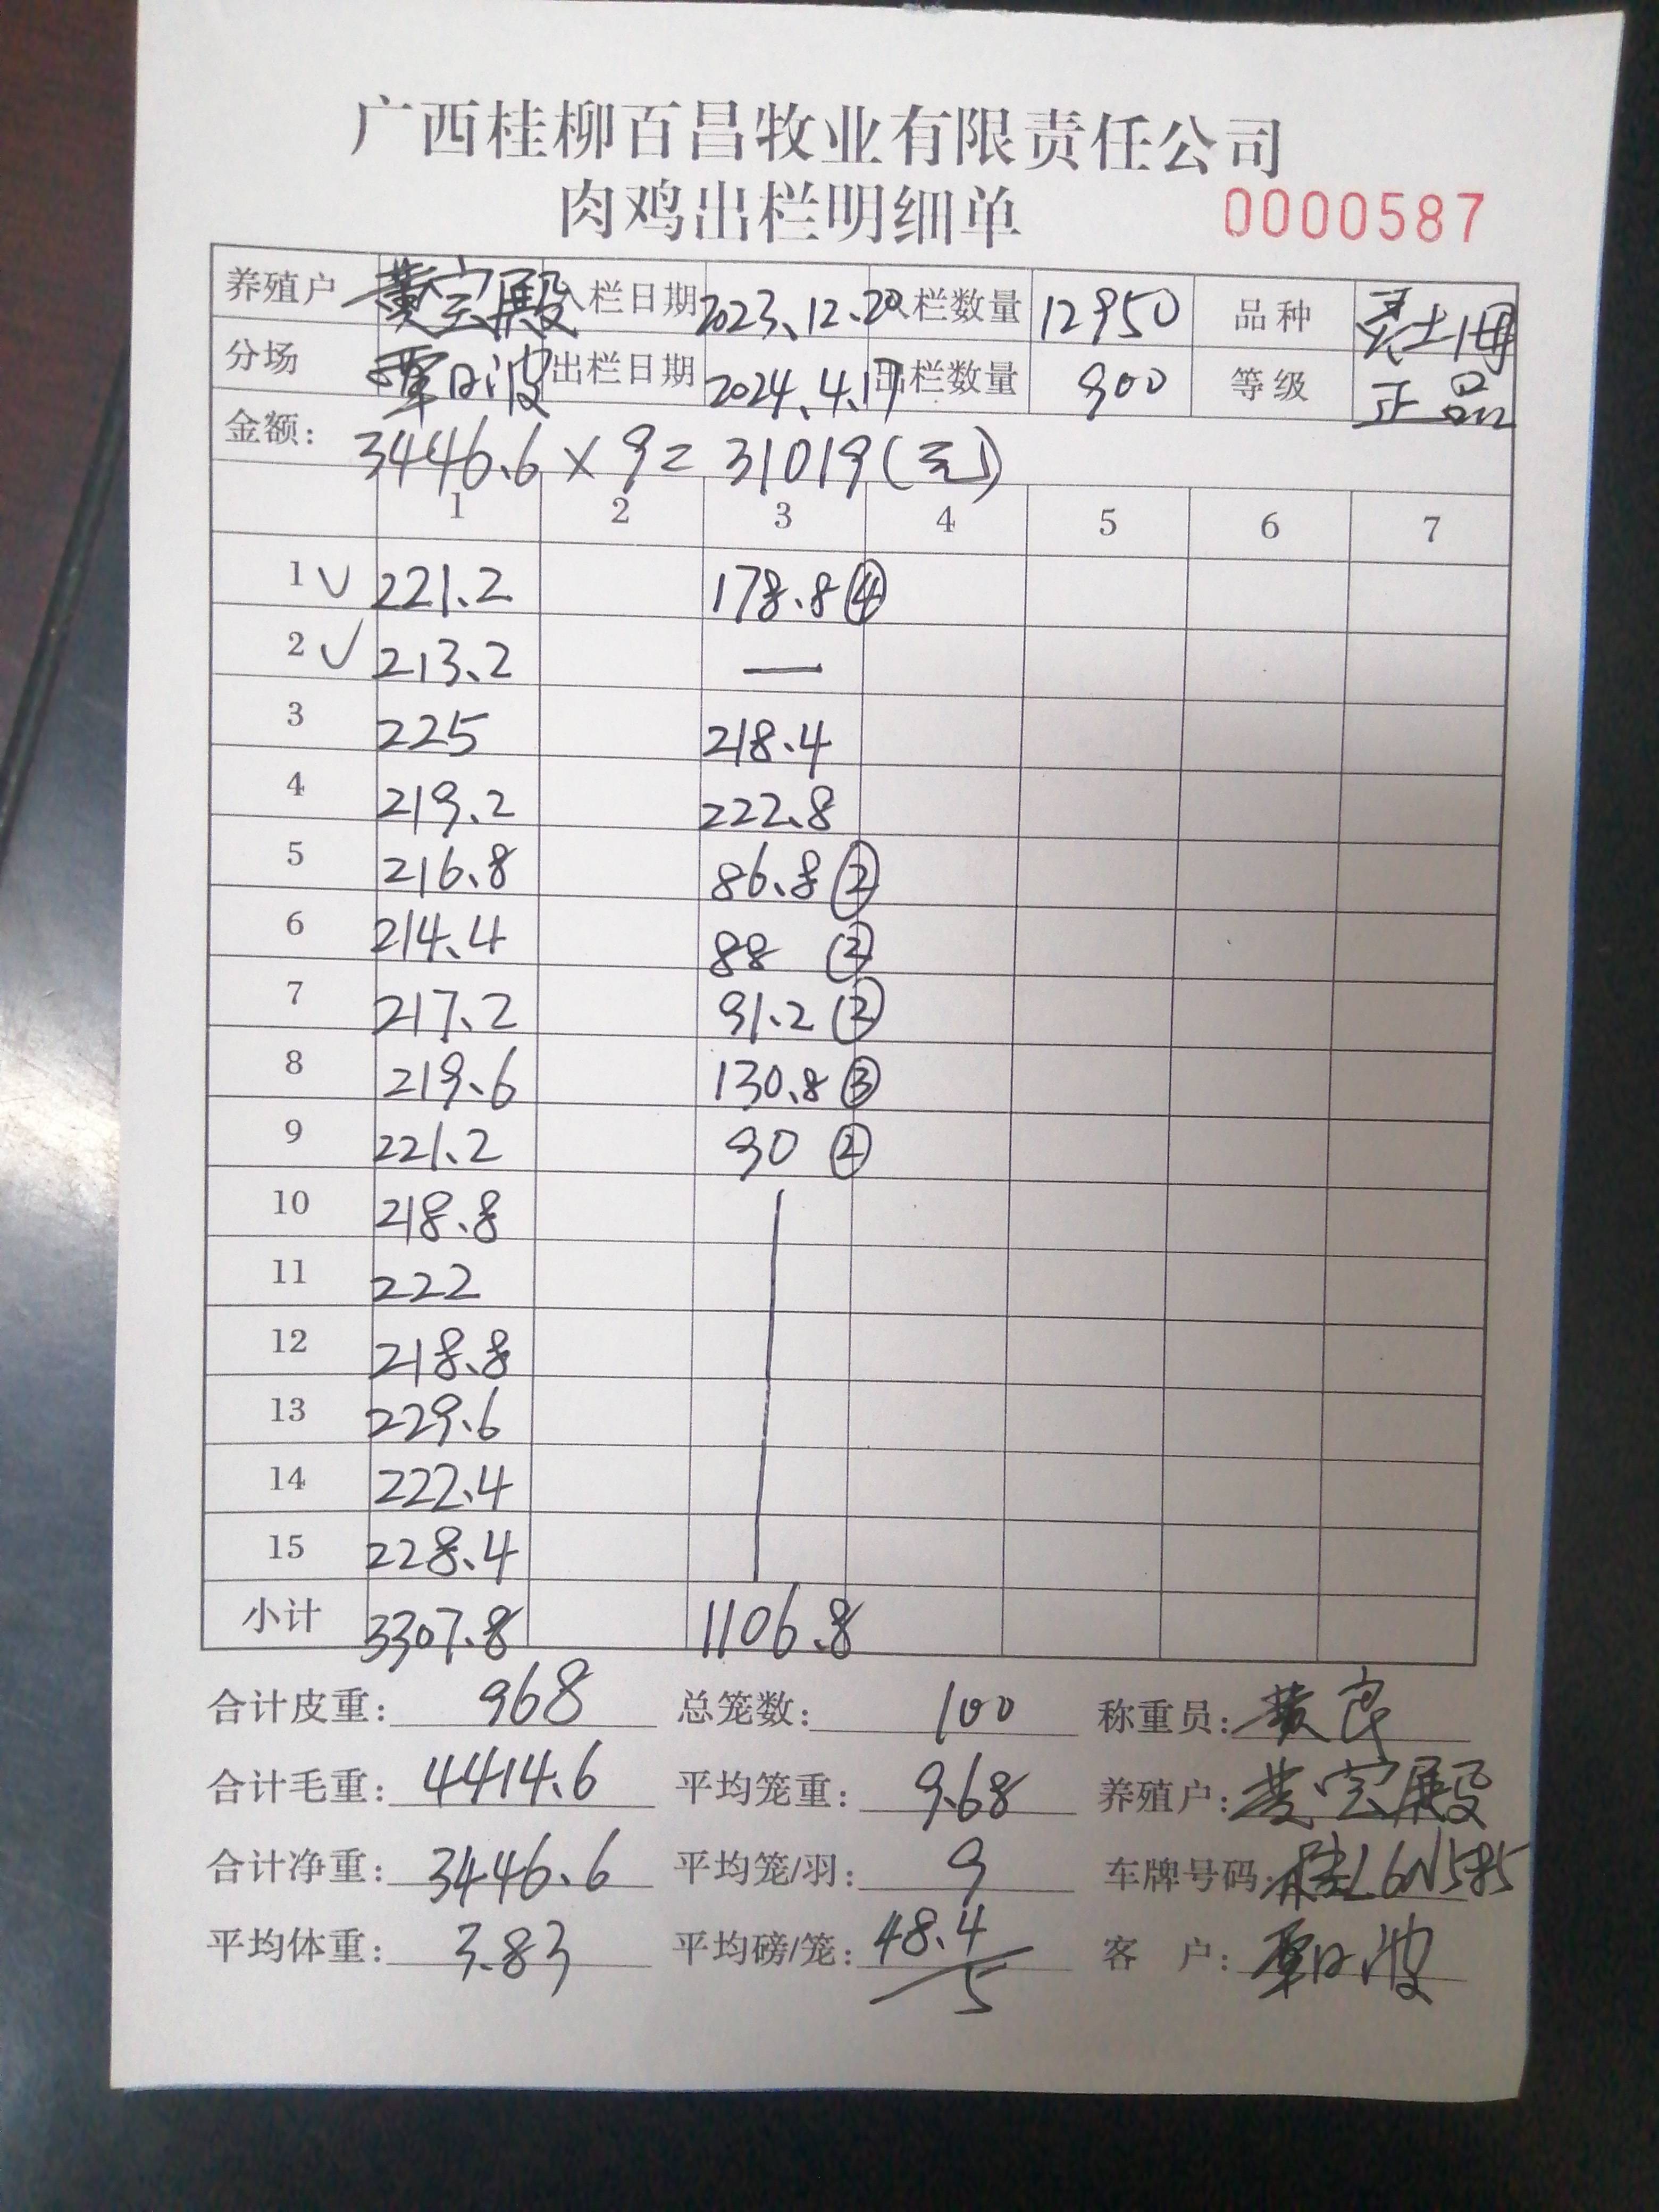 广西桂柳百昌牧业有限责任公司
肉鸡出栏明细单 0000587
养殖户 黄宗殿 入栏日期 2023.12.20 入栏数量 12950 品种
分场 覃日波 出栏日期 2024.4.17 出栏数量 900 等级 正品
金额: 3446.6 × 9 = 31019(元)
1 2 3 4 5 6 7
1 ✓ 221.2 178.8 ④
2 ✓ 213.2 —
3 225 218.4
4 219.2 222.8
5 216.8 86.8 ②
6 214.4 88 ②
7 217.2 91.2 ②
8 219.6 130.8 ③
9 221.2 90 ②
10 218.8
11 222
12 218.8
13 229.6
14 222.4
15 228.4
小计 3307.8 1106.8
合计皮重: 968 总笼数: 100 称重员: 黄
合计毛重: 4414.6 平均笼重: 9.68 养殖户: 黄宗殿
合计净重: 3446.6 平均笼/羽: 9 车牌号码: 桂L6N585
平均体重: 3.83 平均磅/笼: 48.4/5 客 户: 覃日波